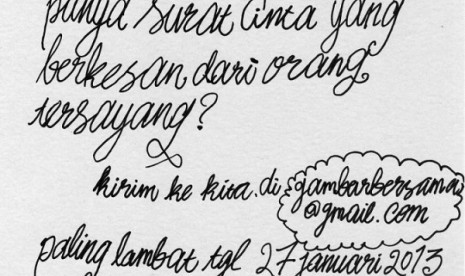 punya surat cinta yang
berkesan dari orang
tersayang?
kirim ke kita di gambarbersama
@gmail.com
paling lambat tgl 27 januari 2013